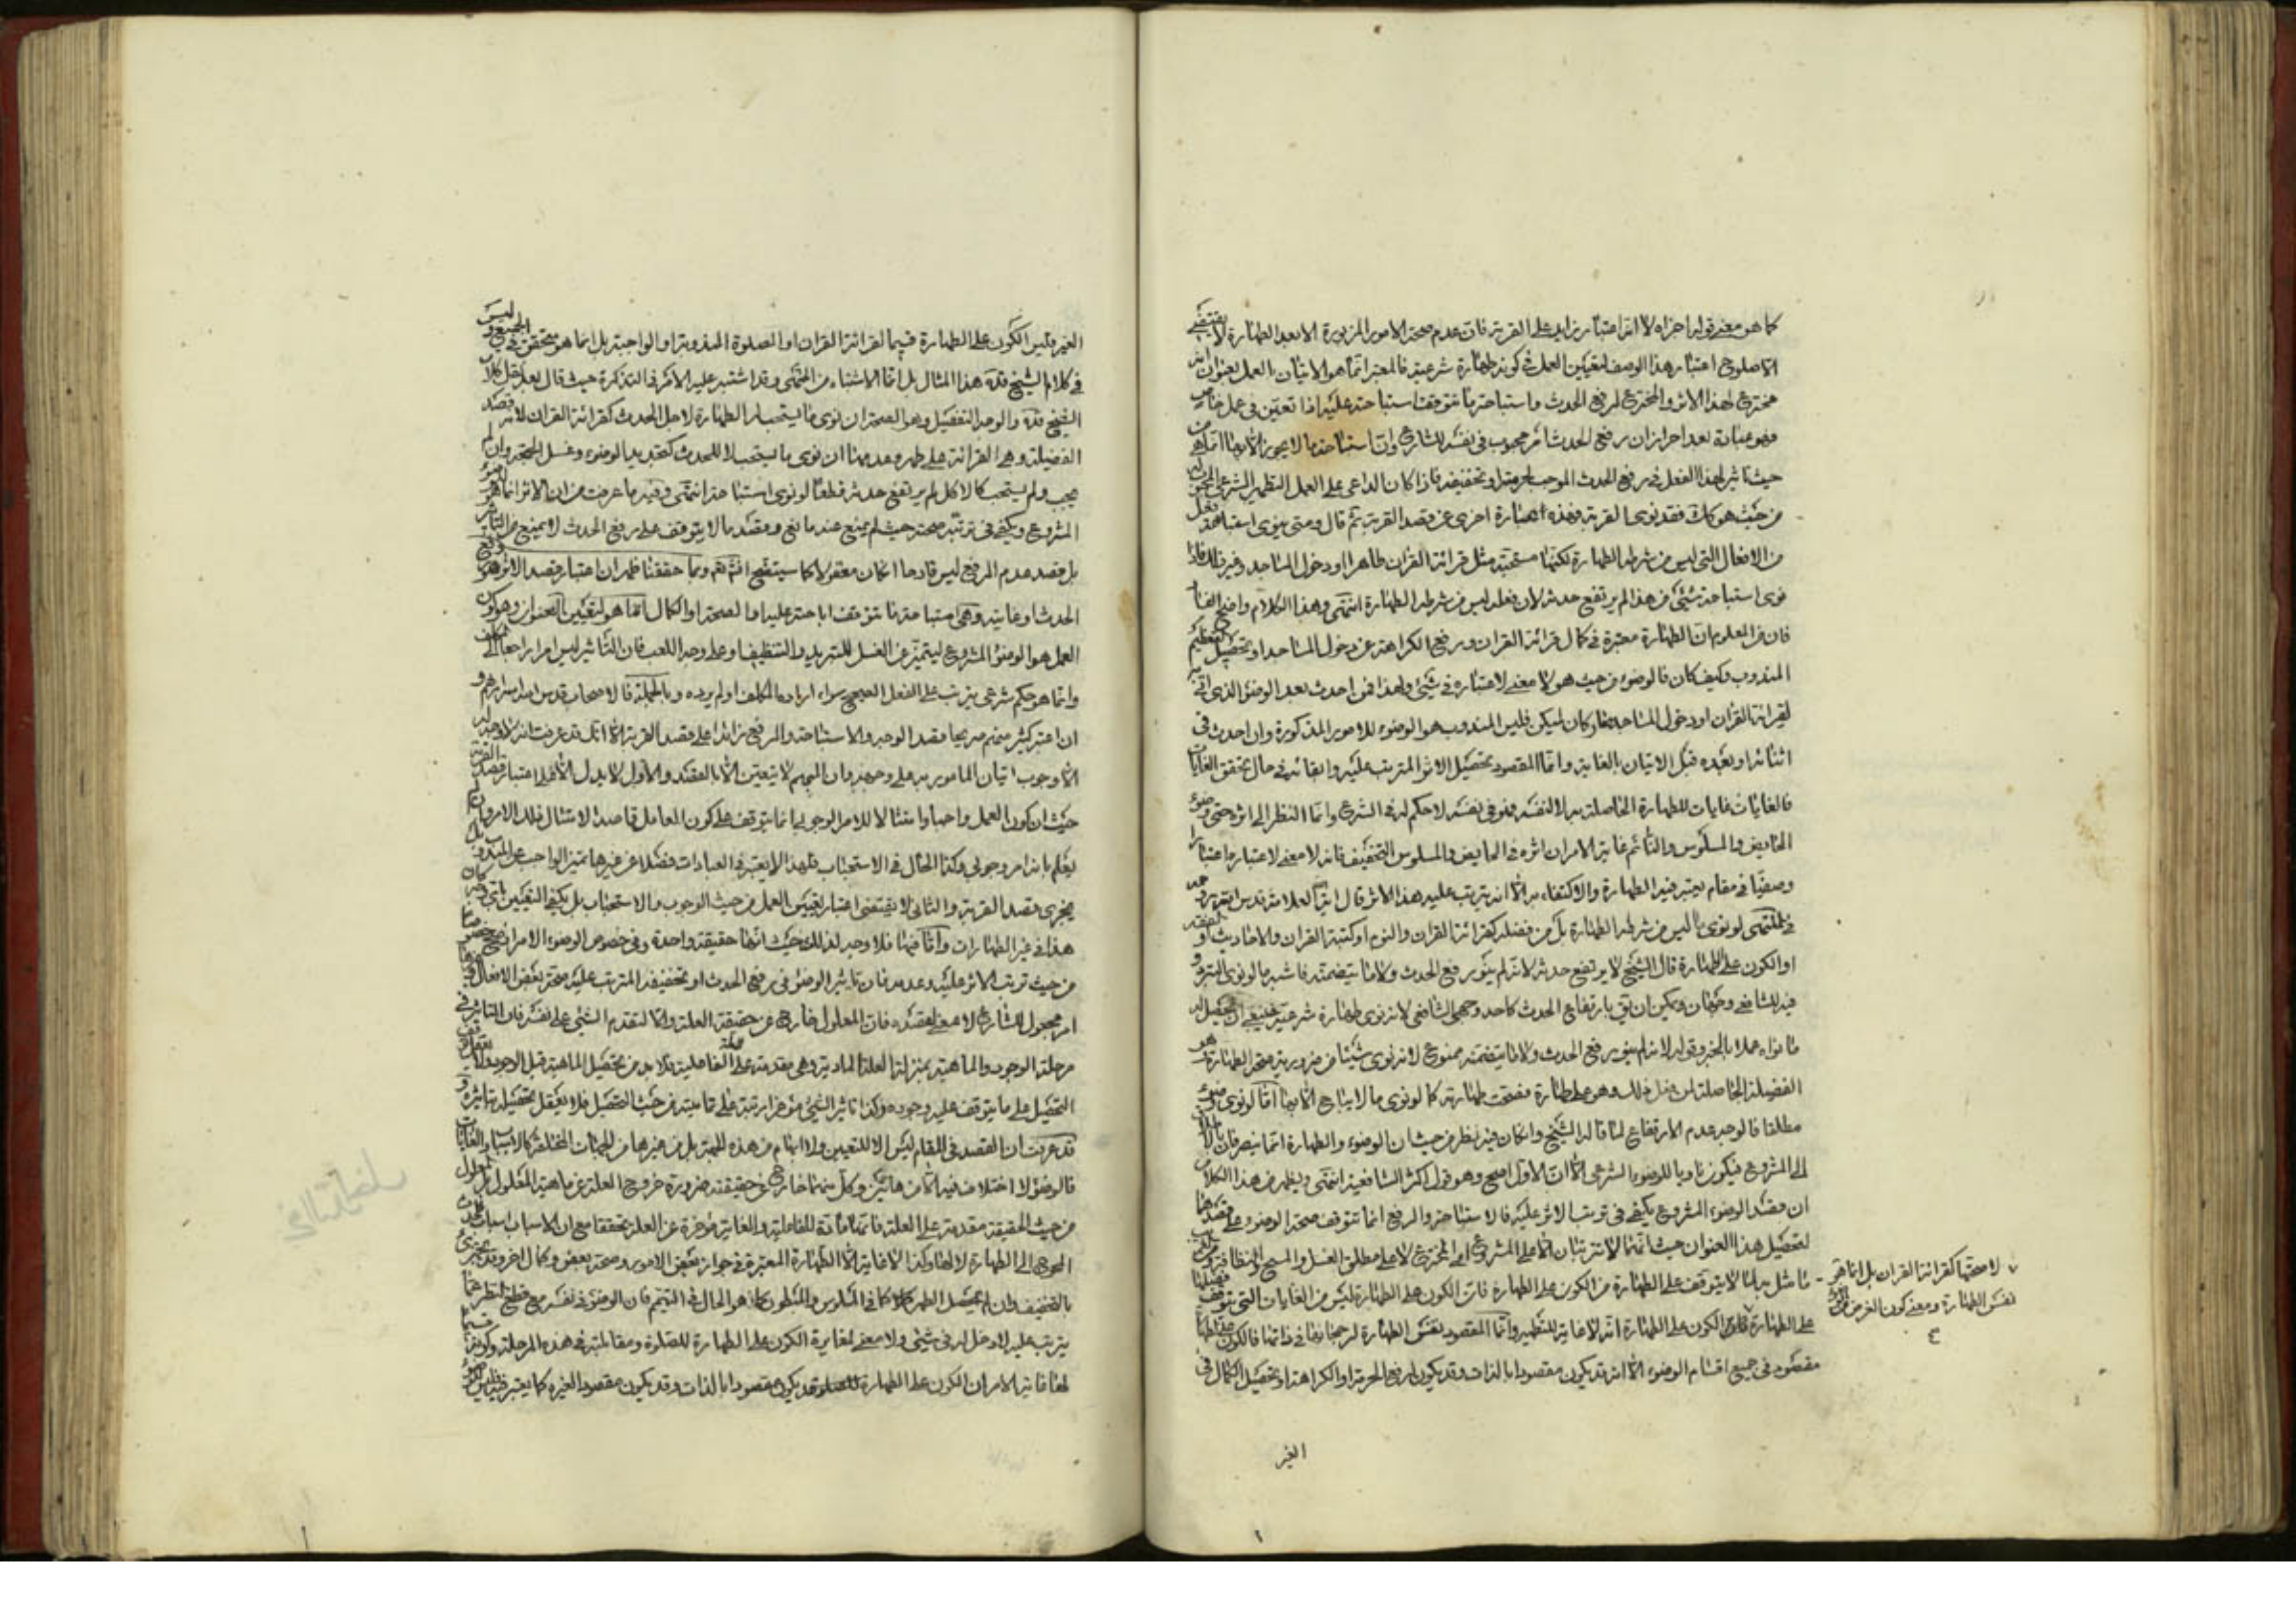 كما هو معنى قوله اجزاه لا انه اعتبار زايد على القربة فان عدم صحة الامور المزبورة الا بعد الطهارة لا يقتضى
الا صلوح اعتبار هذا الوصف لتعيين العمل فى كونه طهارة شرعية فالمعتبر انما هو الاتيان بالعمل بعنوان انه
مخترع لهذا الاثر والمخترع لرفع الحدث واستباحة ما تتوقف استباحته عليه اذا تعين فى عمل خاص
فهو عبادة بعد احراز ان رفع الحدث امر محبوب فى نفسه للشارع وان استباحة ما لا يجوز الا بها انما هى من
حيث تاثير لهذا الفعل فى رفع الحدث الموجب لحرمته او تخفيفه فاذا كان الداعى على العمل التطهير الشرعى المجعول له
من حيث هو كك فقد نوى القربة فهذه عبارة اخرى عن قصد القربة ثم قال ومتى ينوى استباحة فعل
من الافعال التى ليس من شرطه الطهارة لكنها مستحبة مثل قرائة القران طاهرا ودخول المساجد وغير ذلك فاذا
نوى استباحة شئ من هذا لم يرتفع حدثه لان فعله ليس من شرطه الطهارة انتهى وهذا الكلام واضح الفساد
فان من المعلوم ان الطهارة معتبرة فى كمال قرائة القران ورفع الكراهة عن دخول المساجد او تحصيل التعظيم
المندوب وكيف كان فالوضوء من حيث هو لا معنى لاعتباره فى شئ ولهذا فمن احدث بعد الوضوء الذى اتى به
لقرائة القران او دخول المساجد فكان لم يكن فليس المندوب هو الوضوء للامور المذكورة وان احدث فى
اثنائه او بعده قبل الاتيان بالغاية وانما المقصود تحصيل الاثر المترتب عليه وابقائه فى حال تحقق الغايات
فالغايات غايات للطهارة الحاصلة به لا لنفسه فهو فى نفسه لا حكم له فى الشرع وانما النظر الى اثره حتى وضوء
الحايض والمسلوس والنائم غاية الامر ان اثره فى الحايض والمسلوس التخفيف فانه لا معنى لاعتباره اعتبارا
وصفيا فى مقام يعتبر فيه الطهارة والاكتفاء به الا انه يترتب عليه هذا الاثر قال اية الله العلامة قدس الله روحه
فى المنتهى لو نوى ما ليس من شرطه الطهارة بل من فضله كقرائة القران والنوم او كتبة القران والاحاديث او الفقه
او الكون على الطهارة قال الشيخ لا يرتفع حدثه لانه لم ينو رفع الحدث ولا ما يتضمنه فاشبه ما لو نوى التبرد و
فيه للشافعى وجهان ويمكن ان يق بارتفاع الحدث كاحد وجهى الشافعى لانه نوى طهارة شرعية فينبغى ان تحصل له
ما نواه عملا بالخبر وقوله لانه لم ينو رفع الحدث ولا ما يتضمنه ممنوع لانه نوى شيئا من ضرورية صحة الطهارة وهو
الفضيلة الحاصلة لمن فعل ذلك وهو على طهارة فصحت طهارته كما لو نوى ما لا يباح الا بها اما لو نوى وضوء
مطلقا فالوجه عدم الارتفاع لما قاله الشيخ وان كان فيه نظر من حيث ان الوضوء والطهارة انما ينصرفان بالاطلاق
الى المشروع فيكون ناويا للوضوء الشرعى الا ان الاول اصح وهو قول اكثر الشافعية انتهى ويظهر من هذا الكلام
ان قصد الوضوء المشروع يكفى فى ترتب الاثر عليه فالاستباحة والرفع انما تتوقف صحة الوضوء على قصدهما
لتحصيل هذا العنوان حيث انهما لا يترتبان الا على المشروع اى المخترع لا على مطلق الغسل والمسح والنظافة
ما مثل به لما لا يتوقف على الطهارة من الكون على الطهارة فان الكون على الطهارة ليس من الغايات التى تتوقف
على الطهارة الكون على الطهارة انه لا غاية للتطهير وانما المقصود نفس الطهارة لرجحانها فى ذاتها فالكون على الطهارة
مقصود فى جميع اقسام الوضوء الا انه قد يكون مقصودا بالذات وقد يكون لرفع الحرمة او الكراهة او تحصيل الكمال فى
لا صحتها كقرائة القران بل انما هو
نفس الطهارة ومعنى كون الغرض من
الغير
الغير وليس الكون على الطهارة قسيما لقرائة القران او الصلوة المندوبة او الواجبة بل انما هو متحقق فى الجميع وليس
فى كلام الشيخ قده هذا المثال بل انما الاشتباه من المنتهى وقد اشتبه عليه الامر فى التذكرة حيث قال بعد نقل كلام
الشيخ قده والوجه التفصيل وهو الصحة ان نوى ما يستحب له الطهارة لاجل الحدث كقرائة القران لانه قصد
الفضيلة وهى القرائة على طهر وعدمها ان نوى ما يستحب لا للحدث كتجديد الوضوء وغسل الجمعة وان لم
يجب ولم يستحب كالاكل لم يرتفع حدثه قطعا لو نوى استباحته انتهى وفيه ما عرفت من ان الاثر انما هو
المشروع ويكفى فى ترتبه صحته حيث لم يمنع عنه مانع وقصد ما لا يتوقف على رفع الحدث لا يمنع من التاثير
بل قصد عدم الرفع ليس قادحا ان كان معقولا كما سيتضح انشاء الله ومما حققنا ظهر ان اعتبار قصد الاثر وهو رفع
الحدث او غايته وهى استباحة ما تتوقف اباحته عليه او الصحة او الكمال انما هو لتعيين العنوان وهو كون
العمل هو الوضوء المشروع ليتميز عن الغسل للتبريد والتنظيف او على وجه اللعب فان التاثير ليس امرا راجعا الى المكلف
وانما هو حكم شرعى يترتب على الفعل الصحيح سواء اراده المكلف او لم يرده وبالجملة فالاصحاب قدس الله اسرارهم و
ان اعتبر كثير منهم صريحا قصد الوجه والاستباحة والرفع زائدا على قصد القربة الا انك قد عرفت انه لا وجه له
الا وجوب اتيان المامور به على وجهه وان المبهم لا يتعين الا بالقصد والاول لا يدل الا على اعتبار قصد القربة
حيث ان كون العمل واجبا وامتثالا للامر الوجوبى انما يتوقف على كون العامل قاصدا لامتثال ذلك الامر وان لم
يعلم بانه امر وجوبى وكذا الحال فى الاستحباب ولهذا لا يعتبر فى العبادات فضلا عن غيرها تميز الواجب عن المندوب بل
يجزى قصد القربة والثانى لا يقتضى اعتبار تعيين العمل من حيث الوجوب والاستحباب بل يكفى التعيين باى وجه كان
هذا فى غير الطهارات واما فيها فلا وجه لذلك حيث انها حقيقة واحدة وفى خصوص الوضوء الامر
من حيث ترتب الاثر عليه وعدمه فان تاثير الوضوء فى رفع الحدث او تخفيفه المترتب عليه صحة بعض الافعال
امر مجعول للشارع لا معنى لقصده فان المعلول خارج عن حقيقة العلة والا لتقدم الشئ على نفسه فان التاثير فى
مرحلة الوجود والماهية بمنزلة العلة المادية وهى مقدمة على العلة الفاعلية فلا بد من تحصيل الماهية قبل الوجود
التحصيل على ما يتوقف عليه وجوده وكذا تاثير الشئ مؤخر رتبة على تماميته من حيث التحصيل فلا يعقل تحصيله بتاثيره و
قد عرفت ان القصد فى المقام ليس الا للتعيين ولا ابهام من هذه الجهة بل من غيرها من الجهات المختلفة كالاسباب والغايات
فالوضوء لا اختلاف فيه الا من هاتين وكل منهما خارج عن حقيقته ضرورة خروج العلة عن ماهية المعلول
من حيث الحقيقة مقدمة على العلة فانها مادة للفاعلية والغاية مؤخرة عن العلة تحققا مع ان الاسباب اسباب للحدث
المحوج الى الطهارة لا لها وكذا لا غاية الا الطهارة المعتبرة فى جواز بعض الامور وصحة بعض وكمال اخر وقد يجتزئ
بالتخفيف وان لم يحصل الطهر كما فى المسلوس والمبطون كما هو الحال فى التيمم فان الوضوء فى نفسه مع قطع النظر عما
يترتب عليه لا دخل له فى شئ ولا معنى لمغايرة الكون على الطهارة للصلوة ومقابلته فى هذه المرحلة وكونه قسيما
لها غاية الامر ان الكون على الطهارة قد يكون مقصودا بالذات وقد يكون مقصودا لغيره كما يعتبر فيه